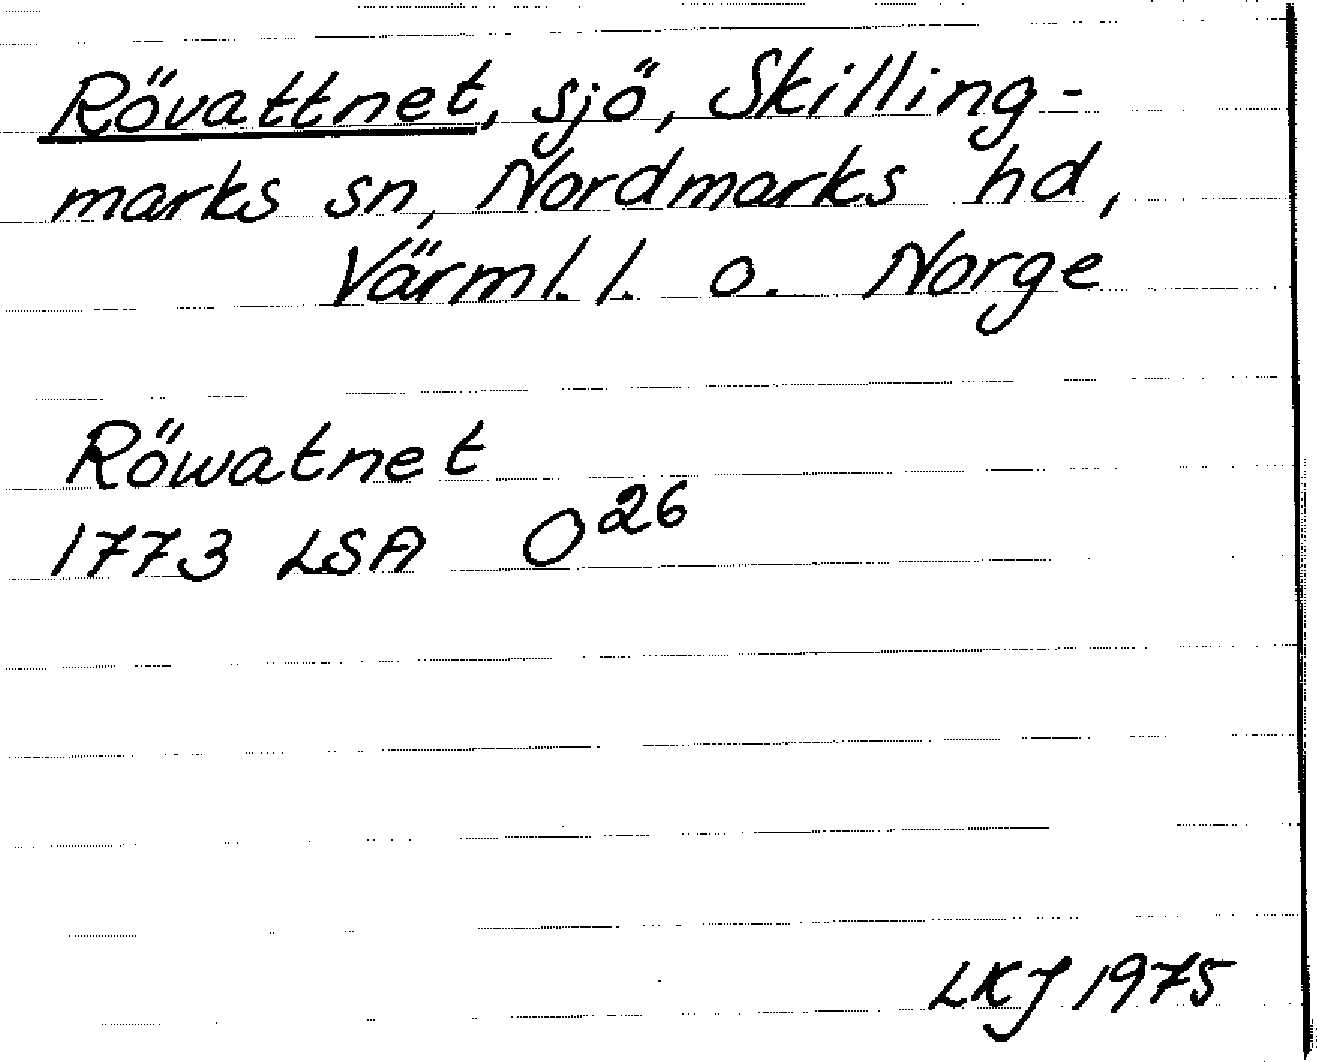 Rövattnet, sjö, Skilling-
marks sn, Nordmarks hd,
Värml. l. o. Norge
Röwatnet
1773 LSA O26
LKJ 1975